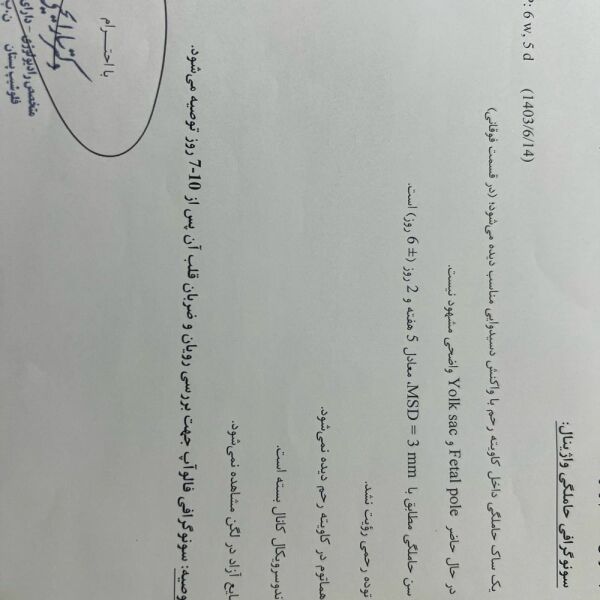 سونوگرافی حاملگی واژینال:
: 6 w, 5 d (1403/6/14)
یک ساک حاملگی داخل کاویته رحم با واکنش دسیدوایی مناسب دیده می‌شود؛ (در قسمت فوقانی)
در حال حاضر Fetal pole و Yolk sac واضحی مشهود نیست.
سن حاملگی مطابق با MSD = 3 mm، معادل 5 هفته و 2 روز (± 6 روز) است.
توده رحمی رؤیت نشد.
هماتوم در کاویته رحم دیده نمی‌شود.
ندوسرویکال کانال بسته است.
مایع آزاد در لگن مشاهده نمی‌شود.
وصیه: سونوگرافی فالوآپ جهت بررسی رویان و ضربان قلب آن پس از 10-7 روز توصیه می‌شود.
با احترام
متخصص رادیولوژی - دارای
فلوشیپ پستان